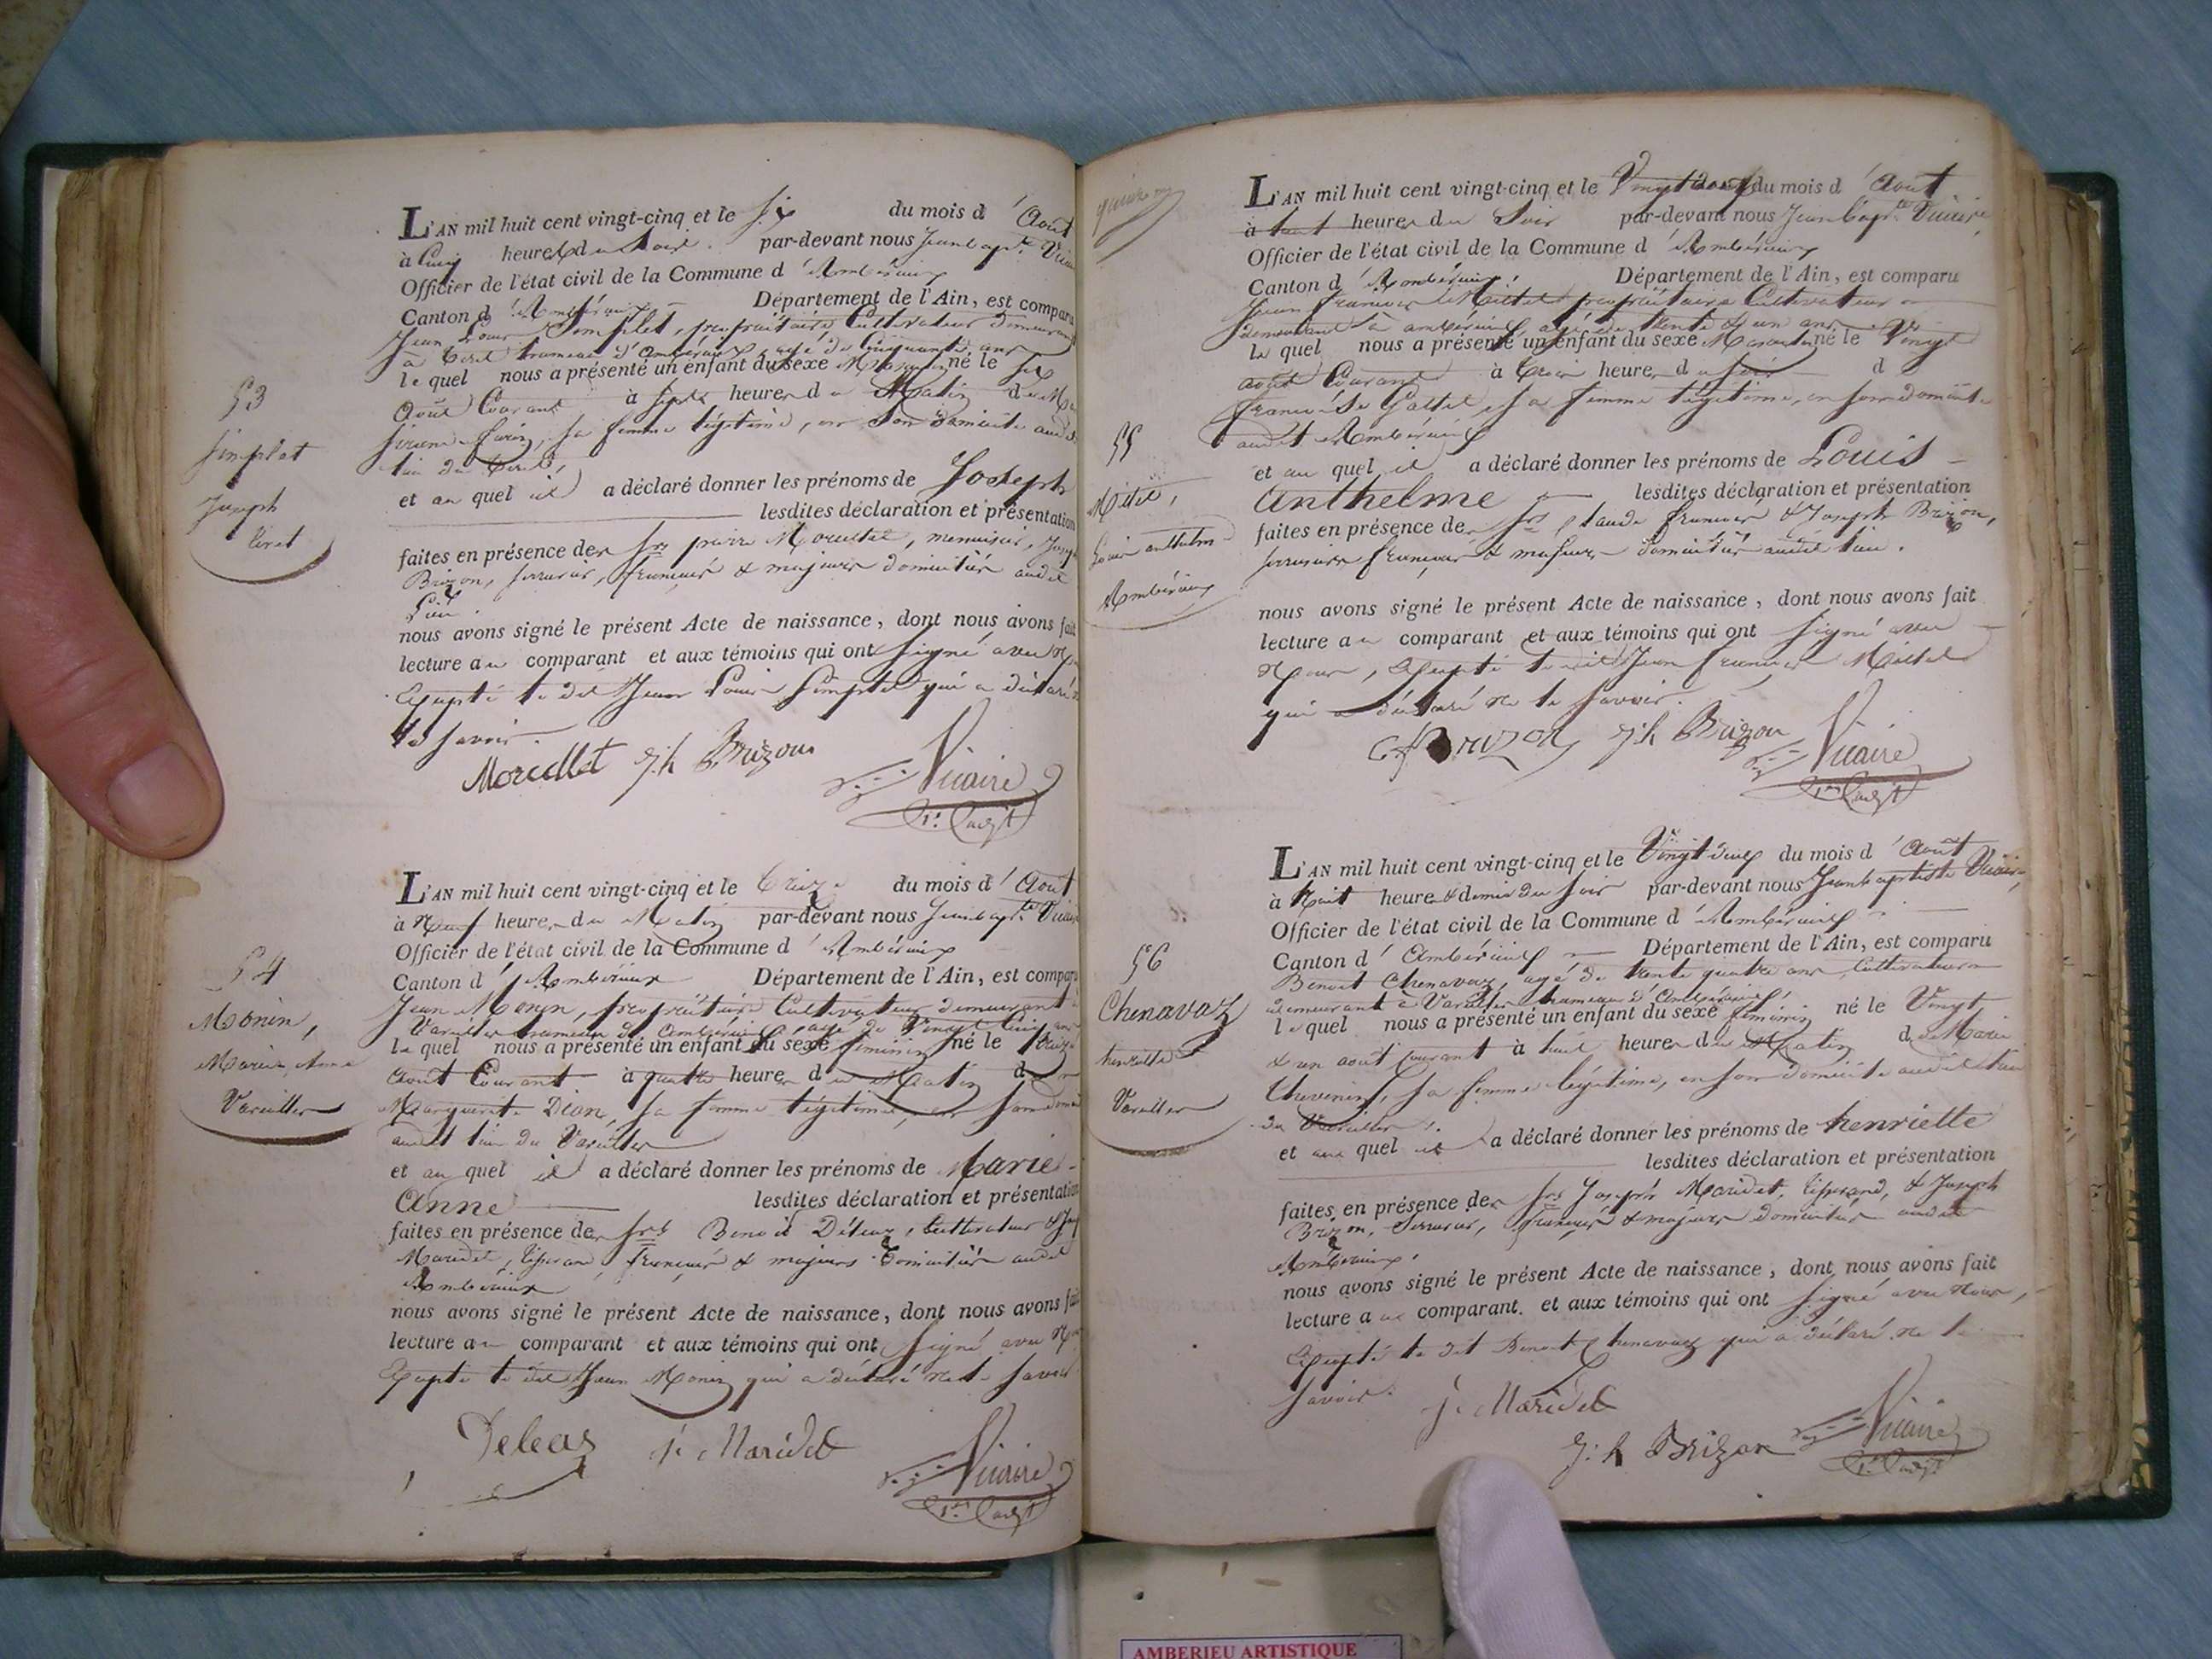 53
Simplet
Joseph
Tiret
L'AN mil huit cent vingt-cinq et le six du mois d'Août
à Cinq heures du soir par-devant nous Jean bapte Vicaire
Officier de l'état civil de la Commune d'Ambérieux
Canton d'Ambérieux Département de l'Ain, est comparu
Jean Louis Simplet, propriétaire Cultivateur demeurant
à Tiret hameau d'Ambérieux, agé de cinquante ans
le quel nous a présenté un enfant du sexe Masculin né le six
Août Courant à sept heures du Matin de
sa femme légitime, en son domicile audit
lieu du Tiret,
et au quel il a déclaré donner les prénoms de Joseph
lesdites déclaration et présentation
faites en présence des Srs pierre Morellet, menuisier, Joseph
Brizon, serrurier, français & majeurs domiciliés audit
Lieu.
nous avons signé le présent Acte de naissance, dont nous avons fait
lecture au comparant et aux témoins qui ont signé avec Nous
Excepté le dit Jean Louis Simplet qui a déclaré ne
le savoir.
Morellet J.h Brizon Vicaire
1er adjt
54
Monin,
Marie Anne
Vareilles
L'AN mil huit cent vingt-cinq et le treize du mois d'Août
à Neuf heures du Matin par-devant nous Jean bapte Vicaire
Officier de l'état civil de la Commune d'Ambérieux
Canton d'Ambérieux Département de l'Ain, est comparu
Jean Monin, propriétaire Cultivateur demeurant à
Vareilles hameau d'Ambérieux, agé de Vingt Cinq ans
le quel nous a présenté un enfant du sexe féminin né le treize
Août Courant à quatre heures du Matin de
Marguerite Dion, sa femme légitime, en son domicile
audit lieu de Vareilles
et au quel il a déclaré donner les prénoms de Marie
Anne lesdites déclaration et présentation
faites en présence des Srs Benoit Déléaz, Cultivateur & Joseph
Maridet, tisserand français & majeurs domiciliés audit
Ambérieux
nous avons signé le présent Acte de naissance, dont nous avons fait
lecture au comparant et aux témoins qui ont signé avec Nous
Excepté le dit Jean Monin qui a déclaré ne le savoir
Deleaz J. Maridet Vicaire
1er adjt
55
Mittet,
Louis anthelme
Ambérieux
L'AN mil huit cent vingt-cinq et le Vingt deux du mois d'Août
à huit heures du Soir par-devant nous Jean bapte Vicaire,
Officier de l'état civil de la Commune d'Ambérieux
Canton d'Ambérieux, Département de l'Ain, est comparu
Jean françois Mittet propriétaire Cultivateur
demeurant à ambérieux, agé de trente & un ans
le quel nous a présenté un enfant du sexe Masculin né le Vingt
août Courant à trois heures du soir d
françoise sa femme légitime, en son domicile
audit Ambérieux
et au quel il a déclaré donner les prénoms de Louis
anthelme lesdites déclaration et présentation
faites en présence des Srs Claude françois & Joseph Brizon,
serruriers français & majeurs domiciliés audit lieu.
nous avons signé le présent Acte de naissance, dont nous avons fait
lecture au comparant et aux témoins qui ont signé avec
Nous, Excepté le dit Jean françois Mittet
qui a déclaré ne le savoir.
Brizon J.h Brizon Vicaire
1er adjt
56
Chenavaz
henriette
Vareilles
L'AN mil huit cent vingt-cinq et le Vingt deux du mois d'Août
à huit heures & demie du soir par-devant nous Jean baptiste Vicaire,
Officier de l'état civil de la Commune d'Ambérieux
Canton d'Ambérieux Département de l'Ain, est comparu
Benoit Chenavaz, agé de trente quatre ans, Cultivateur
demeurant à Vareilles hameau d'Ambérieux,
le quel nous a présenté un enfant du sexe féminin né le Vingt
& un août Courant à huit heures du Matin de Marie
Thevenin, sa femme légitime, en son domicile audit lieu
de Vareilles.
et au quel il a déclaré donner les prénoms de henriette
lesdites déclaration et présentation
faites en présence des Srs Joseph Maridet, tisserand, & Joseph
Brizon, Serrurier, français & majeurs domiciliés audit
Ambérieux.
nous avons signé le présent Acte de naissance, dont nous avons fait
lecture au comparant et aux témoins qui ont signé avec Nous,
Excepté le dit Benoit Chenavaz qui a déclaré ne le
savoir.
J. Maridet
J.h Brizon Vicaire
1er adjt
AMBERIEU ARTISTIQUE